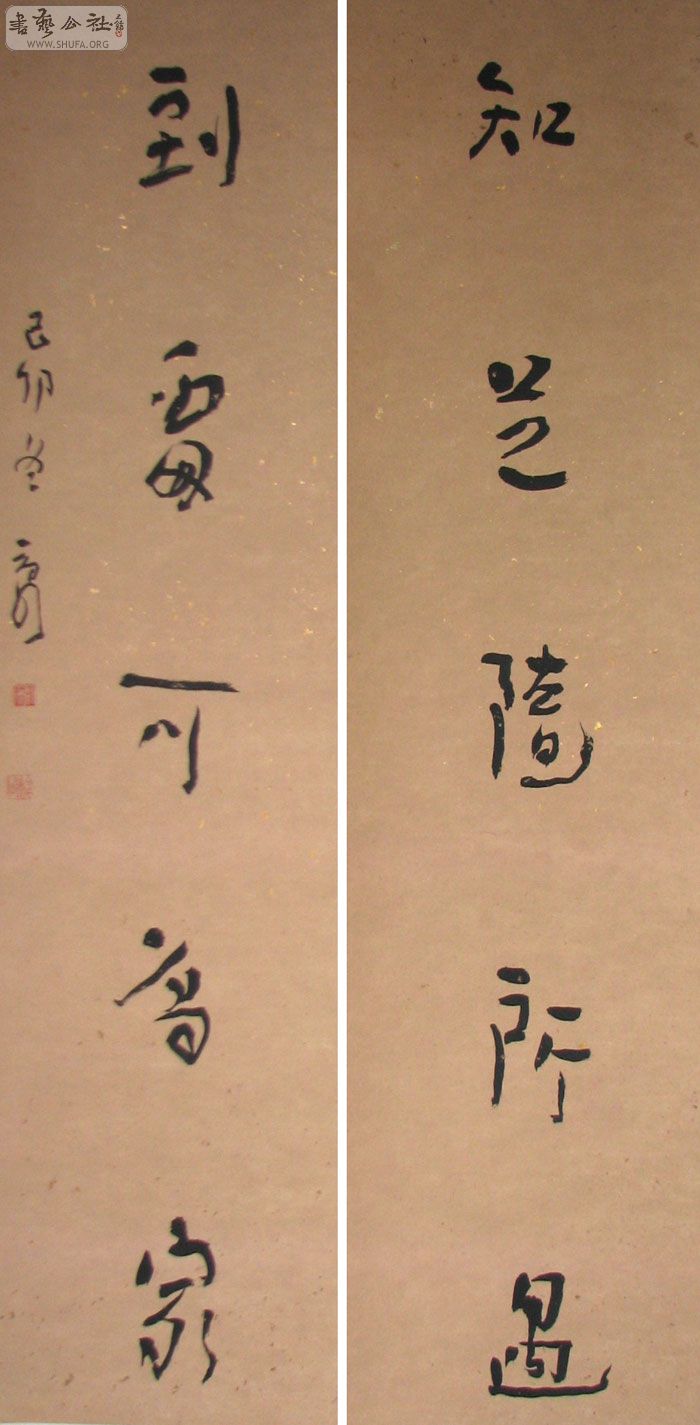 書藝公社
WWW.SHUFA.ORG
知足隨所遇
到處可為家
己卯冬